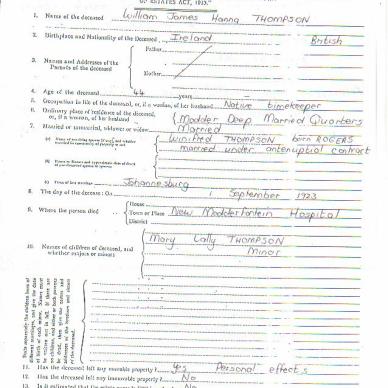 OF ESTATES ACT, 1913."
1. Name of the deceased William James Hanna THOMPSON
2. Birthplace and Nationality of the Deceased Ireland British
3. Names and Addresses of the Parents of the deceased
Father
Mother
4. Age of the deceased 44 years
5. Occupation in life of the deceased, or, if a woman, of her husband Native timekeeper
6. Ordinary place of residence of the deceased, or, if a woman, of her husband Modder Deep Married Quarters
7. Married or unmarried, widower or widow Married
(a) Name of surviving spouse Winifred THOMPSON born ROGERS
married under antenuptial contract
(c) Place of last marriage Johannesburg
8. The day of the decease: On 1 September 1923
9. Where the person died
House
Town or Place New Modderfontein Hospital
District
10. Names of children of deceased, and whether majors or minors
Mary Lally THOMPSON
Minor
11. Has the deceased left any movable property? Yes Personal effects
12. Has the deceased left any immovable property? No
13. Is it estimated that the estate No